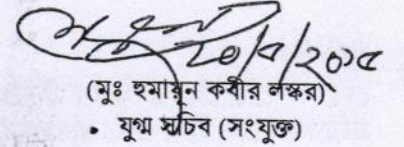 ২০/৭/২০১৫
(মুঃ হুমায়ুন কবীর লস্কর)
যুগ্ম সচিব (সংযুক্ত)